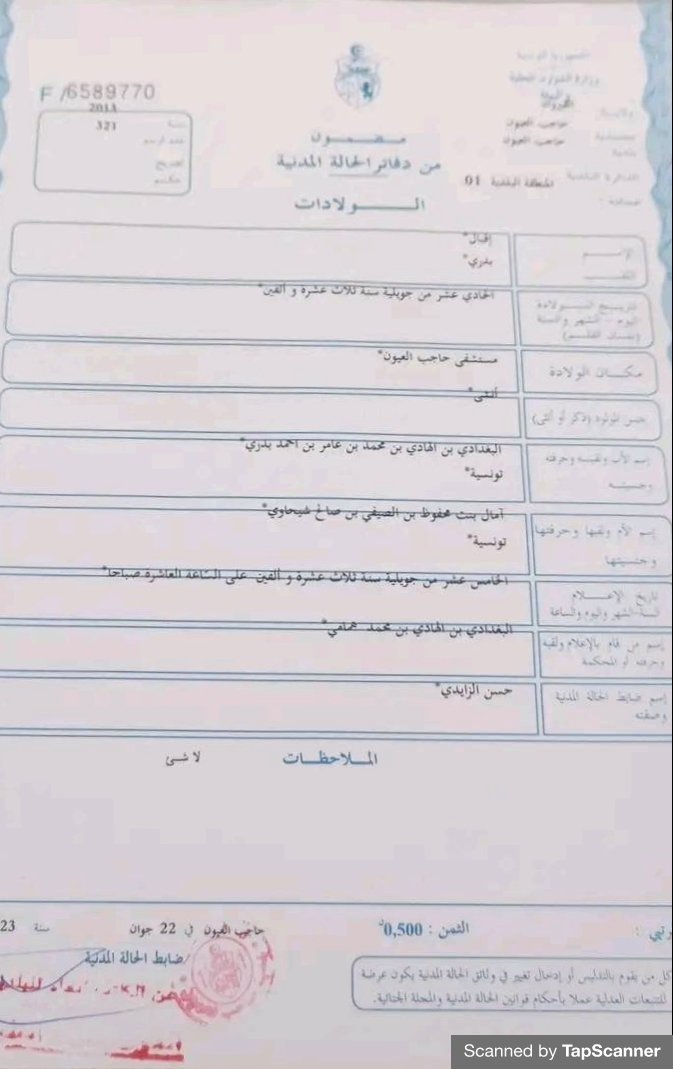 الجمهورية التونسية
وزارة الشؤون المحلية
والبيئة
ولاية القيروان
معتمدية حاجب العيون
بلدية حاجب العيون
الدائرة البلدية المنطقة البلدية 01
F /6589770
سنة 2013
عدد الرسم 321
مضمون
من دفاتر الحالة المدنية
الولادات
الإسم إقبال*
اللقب بدري*
تاريخ الولادة
اليوم - الشهر والسنة
(بلسان القلم)
الحادي عشر من جويلية سنة ثلاث عشرة و ألفين*
مكان الولادة مستشفى حاجب العيون*
جنس المولود (ذكر أو أنثى) أنثى*
إسم الأب ولقبه وحرفته
وجنسيته
البغدادي بن الهادي بن محمد بن عامر بن احمد بدري*
تونسية*
إسم الأم ولقبها وحرفتها
وجنسيتها
آمال بنت محفوظ بن الصيفي بن صالح شيحاوي*
تونسية*
تاريخ الإعلام
السنة-الشهر واليوم والساعة
الخامس عشر من جويلية سنة ثلاث عشرة و ألفين على الساعة العاشرة صباحا*
إسم من قام بالإعلام ولقبه
وحرفته أو المحكمة
البغدادي بن الهادي بن محمد همامي*
إسم ضابط الحالة المدنية
وصفته
حسن الزايدي*
الملاحظات لا شئ
الثمن : 0,500
حاجب العيون في 22 جوان سنة 23
ضابط الحالة المدنية
كل من يقوم بالتدليس أو إدخال تغيير في وثائق الحالة المدنية يكون عرضة
للتتبعات العدلية عملا بأحكام قوانين الحالة المدنية والمجلة الجنائية.
Scanned by TapScanner